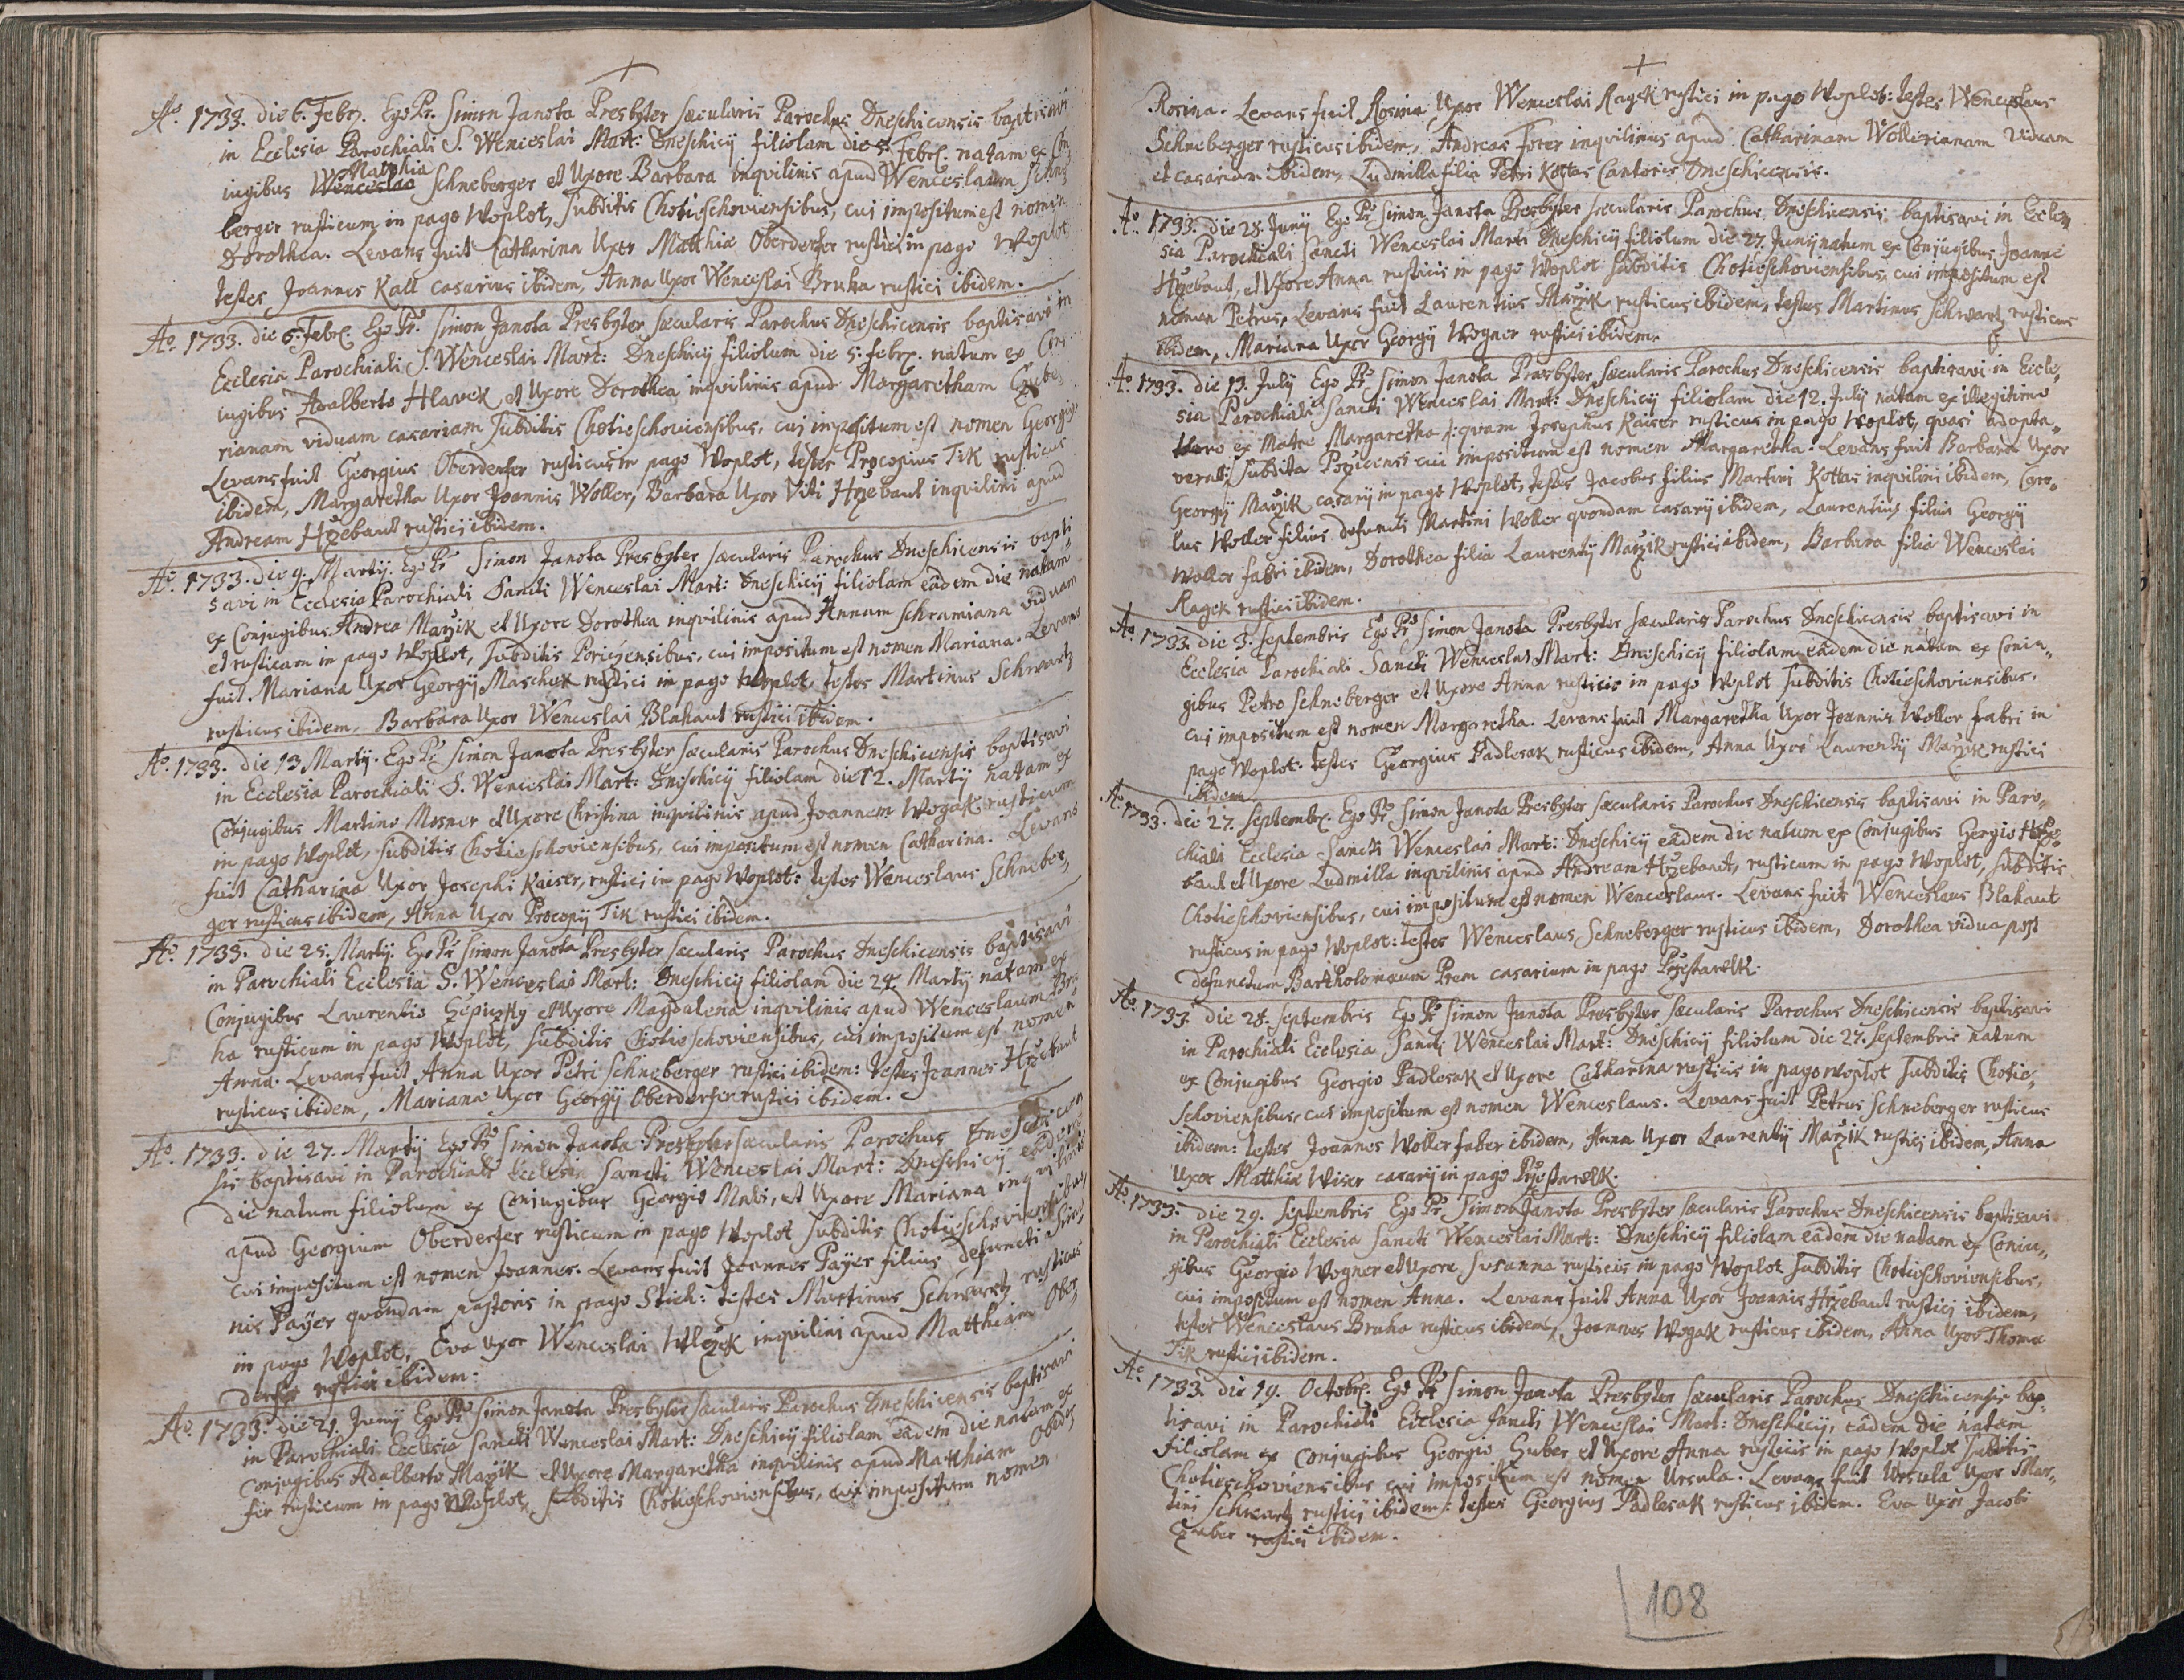 Ao. 1733. die 6. Febr. Ego Pr. Simon Janota Presbyter sæcularis Parochus Dneschicensis baptisavi
in Ecclesia Parochiali S. Wenceslai Mart: Dneschicij filiolam die 5. Febr. natam ex Con
Matthia
iugibus Wenceslao Schneberger et Uxore Barbara inqvilinis apud Wenceslaum Schne
berger rusticum in pago Woplot, Subditis Chotieschoviensibus, cui impositum est nomen
Dorothea. Levans fuit Catharina Uxor Matthiæ Oberderfer rustici in pago Woplot
testes Joannes Kall casarius ibidem, Anna Uxor Wenceslai Bruha rustici ibidem.
Ao. 1733. die 6. Febr. Ego Pr. Simon Janota Presbyter sæcularis Parochus Dneschicensis baptisavi in
Ecclesia Parochiali S. Wenceslai Mart: Dneschicij filiolum die 5. febr. natum ex Con
iugibus Adalberto Hlavek et Uxore Dorothea inqvilinis apud Margaretham
rianam viduam casariam Subditis Chotieschoviensibus, cui impositum est nomen Georgius
Levans fuit Georgius Oberderfer rusticus in pago Woplot, testes Procopius Tik rusticus
ibidem, Margaretha Uxor Joannis Woller, Barbara Uxor Viti Hržebaut inqvilini apud
Andream Hržebaut rustici ibidem.
Ao. 1733. die 9. Martij. Ego Pr. Simon Janota Presbyter sæcularis Parochus Dneschicensis bapti
savi in Ecclesia Parochiali Sancti Wenceslai Mart: Dneschicij filiolam eâdem die natam
ex Conjugibus Andrea Maržik et Uxore Dorothea inqvilinis apud Annam Schramiana viduam
et rusticam in pago Woplot, Subditis Poriczensibus, cui impositum est nomen Mariana. Levans
fuit Mariana Uxor Georgij Maschek rustici in pago Woplot, testes Martinus Schwartz
rusticus ibidem, Barbara Uxor Wenceslai Blahaut rustici ibidem.
Ao. 1733. die 13 Martij. Ego Pr. Simon Janota Presbyter sæcularis Parochus Dneschicensis baptisavi
in Ecclesia Parochiali S. Wenceslai Mart: Dneschicij filiolam die 12. Martij natam ex
Conjugibus Martino Mosner et Uxore Christina inqvilinis apud Joannem Wogak rusticum
in pago Woplot, Subditis Chotieschoviensibus, cui impositum est nomen Catharina. Levans
fuit Catharina Uxor Josephi Kaiser, rustici in pago Woplot: testes Wenceslaus Schneber,
ger rusticus ibidem, Anna Uxor Procopij Tik rustici ibidem.
Ao. 1733. die 25. Martij. Ego Pr. Simon Janota Presbyter sæcularis Parochus Dneschicensis baptisavi
in Parochiali Ecclesia S. Wenceslai Mart: Dneschicij filiolam die 24. Martij natam ex
Conjugibus Laurentio et Uxore Magdalena inqvilinis apud Wenceslaum Bru
ha rusticum in pago Woplot, Subditis Chotieschoviensibus, cui impositum est nomen
Anna. Levans fuit Anna Uxor Petri Schneberger rustici ibidem: testes Joannes Hržebaut
rusticus ibidem, Mariana Uxor Georgij Oberderfer rustici ibidem.
Ao. 1733. die 27. Martij Ego Pr. Simon Janota Presbyter sæcularis Parochus Dneschicen
sis baptisavi in Parochiali Ecclesia Sancti Wenceslai Mart: Dneschicij eâdem
die natum filiolum ex Conjugibus Georgio et Uxore Mariana inqvilinis
apud Georgium Oberderfer rusticum in pago Woplot Subditis Chotieschoviensibus
cui impositum est nomen Joannes. Levans fuit Joannes Payer filius defuncti Simo
nis Payer qvondam pastoris in pago Stich: testes Martinus Schwartz rusticus
in pago Woplot, Eva Uxor Wenceslai Wlczek inqvilini apud Matthiam Ober
derfer rustici ibidem.
Ao. 1733. die 21. Junij Ego Pr. Simon Janota Presbyter sæcularis Parochus Dneschicensis baptisavi
in Parochiali Ecclesia Sancti Wenceslai Mart: Dneschicij filiolam eâdem die natam ex
Conjugibus Adalberto Maržik et Uxore Margaretha inqvilinis apud Matthiam Oberder
fer rusticum in pago Woplot, Subditis Chotieschoviensibus, cui impositum nomen
Rosina. Levans fuit Rosina Uxor Wenceslai Ragek rustici in pago Woplot: testes Wenceslaus
Schneberger rusticus ibidem, Andreas Forer inqvilinus apud Catharinam Wollerianam viduam
et casariam ibidem, Ludmilla filia Petri Kottas Cantoris Dneschicensis.
Ao. 1733. die 28. Junij Ego Pr. Simon Janota Presbyter sæcularis Parochus Dneschicensis baptisavi in Eccle„
sia Parochiali Sancti Wenceslai Mart: Dneschicij filiolum die 27. Junij natum ex Conjugibus Joanne
Hržebaut, et Uxore Anna rusticis in pago Woplot Subditis Chotieschoviensibus, cui impositum est
nomen Petrus, Levans fuit Laurentius Maržik rusticus ibidem, testes Martinus Schwartz rusticus
ibidem, Mariana Uxor Georgij Wogner rustici ibidem.
Ao. 1733. die 13. July Ego Pr. Simon Janota Presbyter sæcularis Parochus Dneschicensis baptisavi in Eccle„
sia Parochiali Sancti Wenceslai Mart: Dneschicij filiolam die 12. July natam ex illegitimo
thoro ex Matre Margaretha /: qvam Josephus Kaiser rusticus in pago Woplot, qvasi adopta„
verat :/ Subdita Poricensi cui impositum est nomen Margaretha. Levans fuit Barbara Uxor
Georgij Maržik casarij in pago Woplot, testes Jacobus filius Martini Kottas inqvilini ibidem, Caro„
lus Woller filius defuncti Martini Woller qvondam casarij ibidem, Laurentius filius Georgij
Woller fabri ibidem, Dorothea filia Laurentij Maržik rustici ibidem, Barbara filia Wenceslai
Ragek rustici ibidem.
Ao. 1733. die 3. Septembris Ego Pr. Simon Janota Presbyter sæcularis Parochus Dneschicensis baptisavi in
Ecclesia Parochiali Sancti Wenceslai Mart: Dneschicij filiolam eâdem die natam ex Coniu„
gibus Petro Schneberger et Uxore Anna rusticis in pago Woplot Subditis Chotieschoviensibus,
cui impositum est nomen Margaretha. Levans fuit Margaretha Uxor Joannis Woller fabri in
pago Woplot: testes Georgius Padlesak rusticus ibidem, Anna Uxor Laurentij Maržik rustici
ibidem.
Ao. 1733. die 27. Septembr. Ego Pr. Simon Janota Presbyter sæcularis Parochus Dneschicensis baptisavi in Paro„
chiali Ecclesia Sancti Wenceslai Mart: Dneschicij eâdem die natum ex Conjugibus Georgio Hrže„
baut et Uxore Ludmilla inqvilinis apud Andream Hržebaut, rusticum in pago Woplot, Subditis
Chotieschoviensibus, cui impositum est nomen Wenceslaus. Levans fuit Wenceslaus Blahaut
rusticus in pago Woplot: testes Wenceslaus Schneberger rusticus ibidem, Dorothea vidua post
defunctum Bartholomæum Prem casarium in pago Pržestawlk.
Ao. 1733. die 28. Septembris Ego Pr. Simon Janota Presbyter sæcularis Parochus Dneschicensis baptisavi
in Parochiali Ecclesia Sancti Wenceslai Mart: Dneschicij filiolum die 27. Septembris natum
ex Conjugibus Georgio Padlesak et Uxore Catharina rusticis in pago Woplot Subditis Chotie„
schoviensibus, cui impositum est nomen Wenceslaus. Levans fuit Petrus Schneberger rusticus
ibidem: testes Joannes Woller faber ibidem, Anna Uxor Laurentij Maržik rustici ibidem, Anna
Uxor Matthiæ Wiser casarij in pago Pržestawlk.
Ao. 1733. die 29. Septembris Ego Pr. Simon Janota Presbyter sæcularis Parochus Dneschicensis baptisavi
in Parochiali Ecclesia Sancti Wenceslai Mart: Dneschicij filiolam eâdem die natam ex Coniu„
gibus Georgio Wogner et Uxore Susanna rusticis in pago Woplot Subditis Chotieschoviensibus,
cui impositum est nomen Anna. Levans fuit Anna Uxor Joannis Hržebaut rustici ibidem,
testes Wenceslaus Bruha rusticus ibidem, Joannes Wogak rusticus ibidem, Anna Uxor Thomæ
Tik rustici ibidem.
Ao. 1733. die 19. Octobr. Ego Pr. Simon Janota Presbyter sæcularis Parochus Dneschicensis bap„
tisavi in Parochiali Ecclesia Sancti Wenceslai Mart: Dneschicij, eâdem die natam
filiolam ex Conjugibus Georgio Guber et Uxore Anna rusticis in pago Woplot Subditis
Chotieschoviensibus cui impositum est nomen Ursula. Levans fuit Ursula Uxor Mar„
tini Schwartz rustici ibidem: testes Georgius Padlesak rusticus ibidem. Eva Uxor Jacobi
rustici ibidem.
108